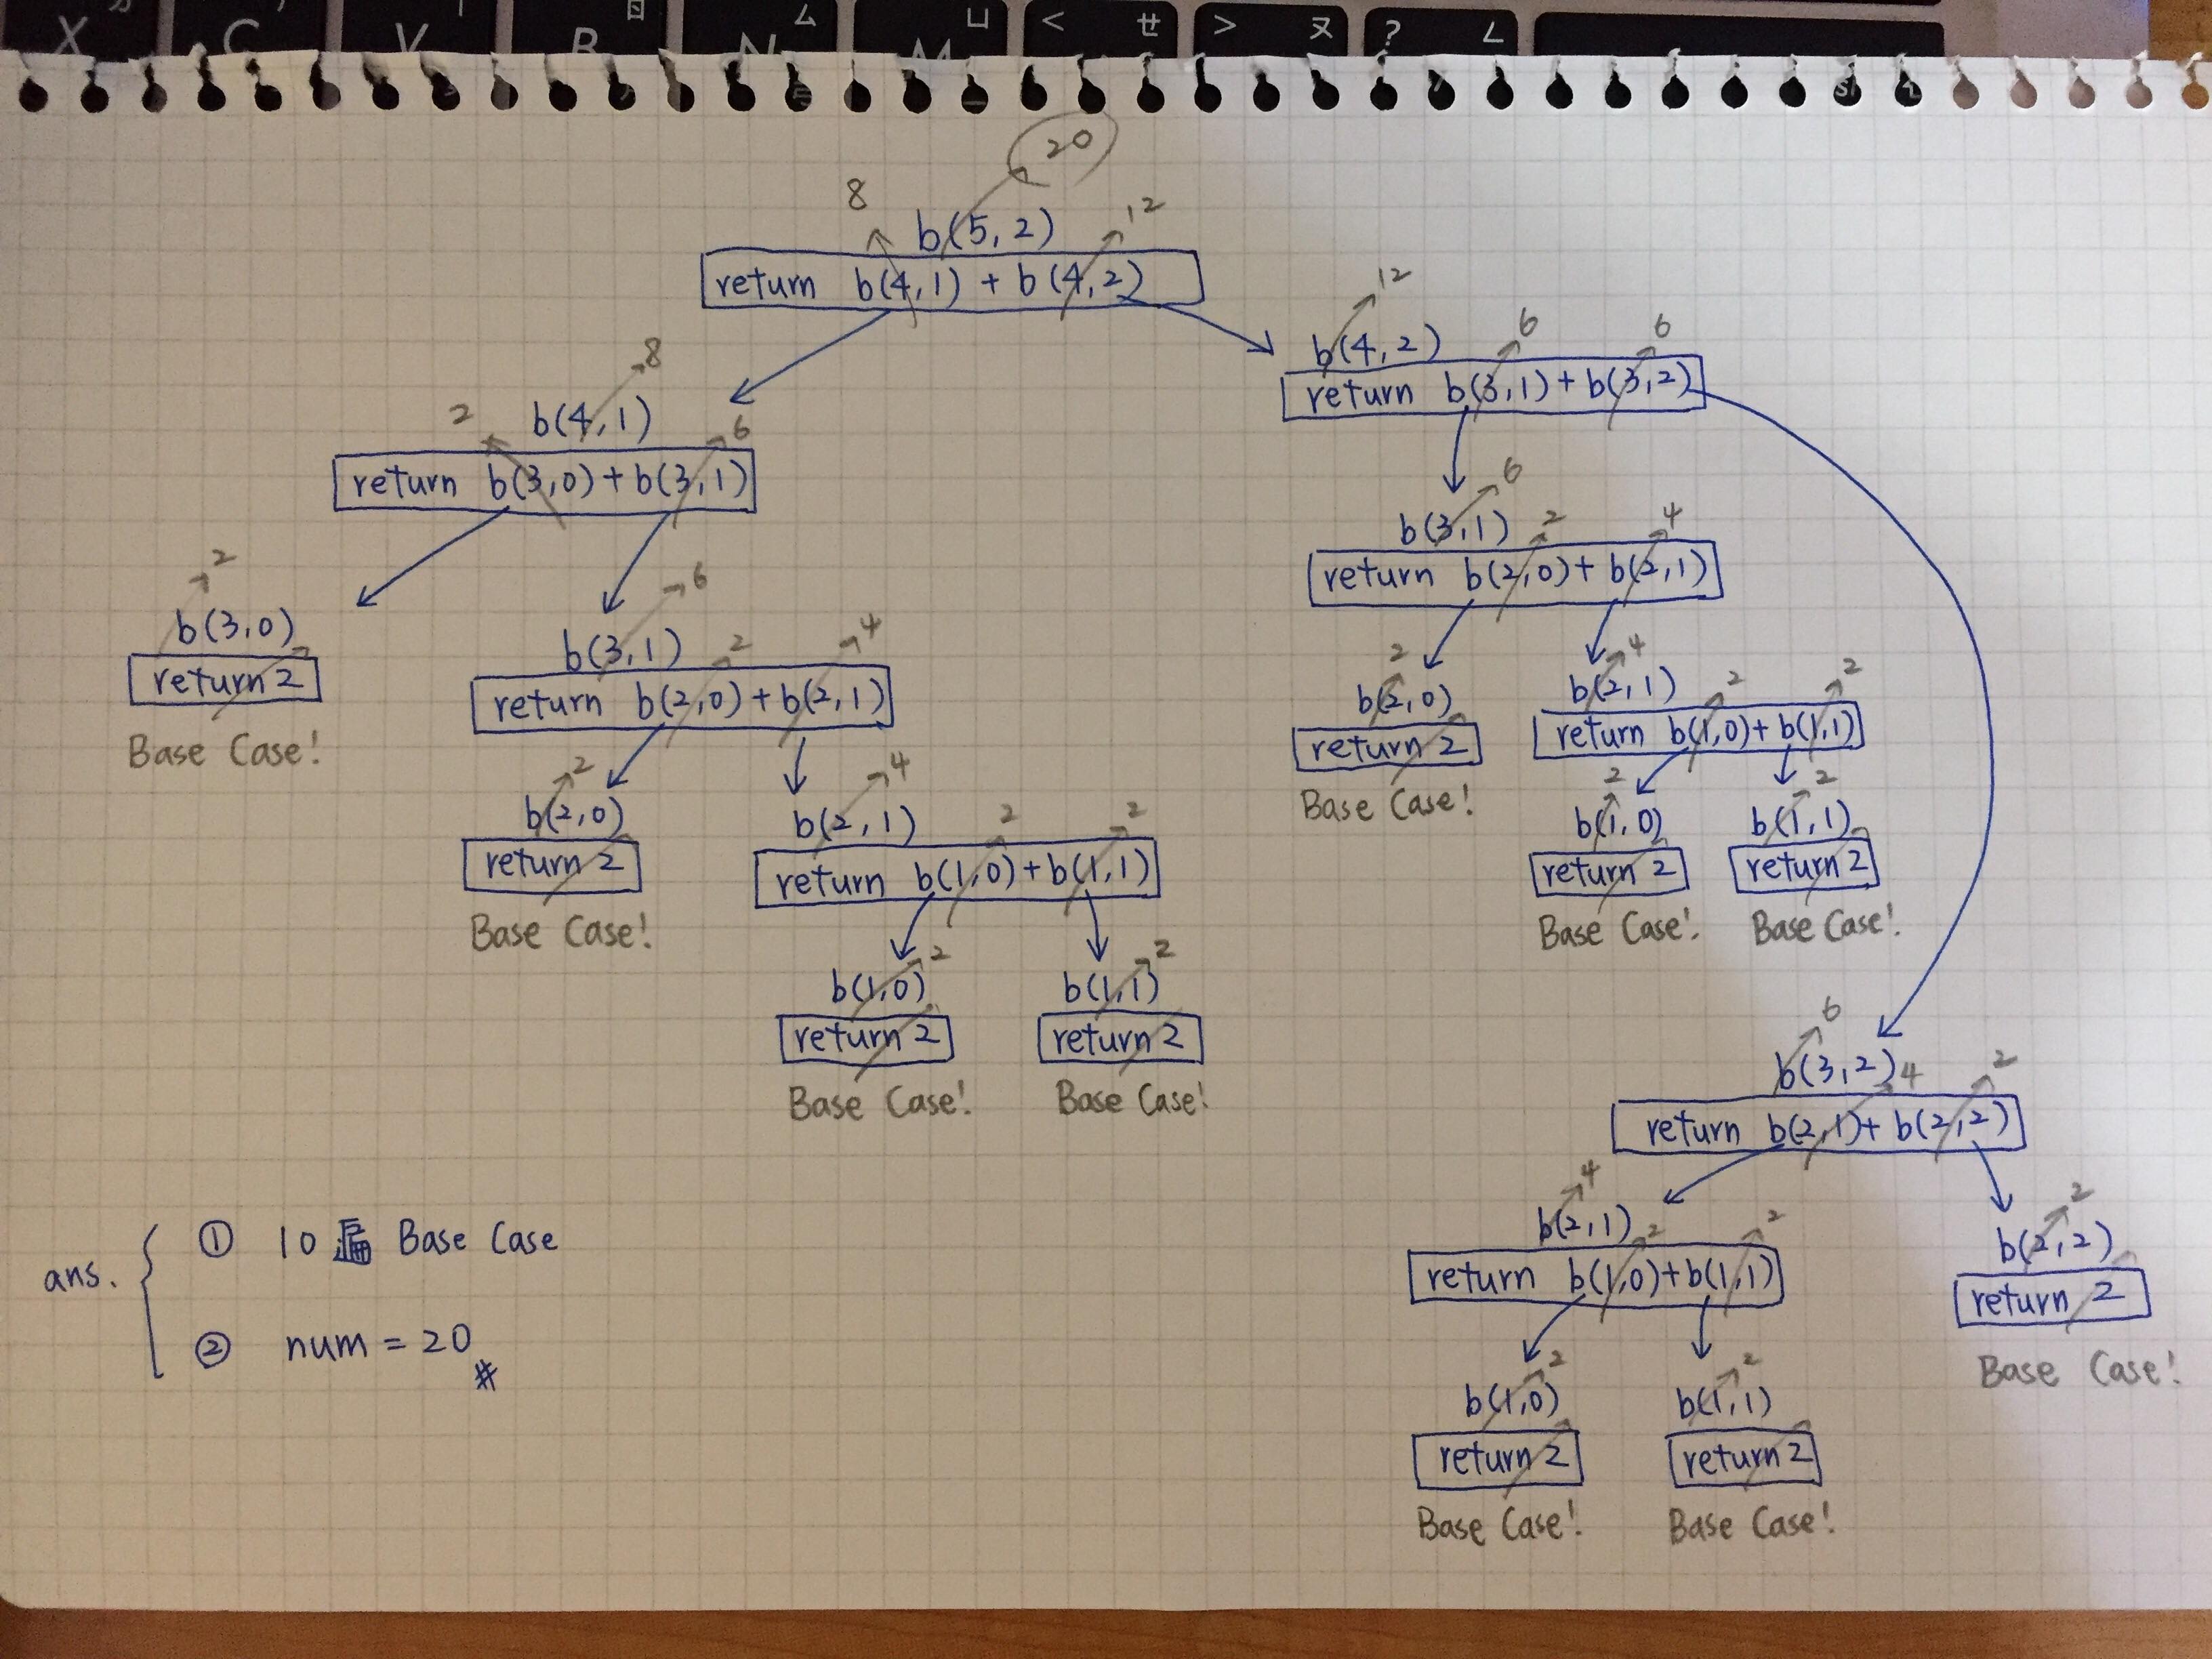 X C V B N M < > ?
ㄙ ㄩ ㄝ ㄡ ㄥ
20
8 12
b(5,2)
return b(4,1) + b(4,2)
12
6 6
b(4,2)
return b(3,1) + b(3,2)
8
2 6
b(4,1)
return b(3,0) + b(3,1)
2
b(3,0)
return 2
Base Case!
6
2 4
b(3,1)
return b(2,0) + b(2,1)
2
b(2,0)
return 2
Base Case!
4
2 2
b(2,1)
return b(1,0) + b(1,1)
2
b(1,0)
return 2
Base Case!
2
b(1,1)
return 2
Base Case!
6
2 4
b(3,1)
return b(2,0) + b(2,1)
2
b(2,0)
return 2
Base Case!
4
2 2
b(2,1)
return b(1,0) + b(1,1)
2
b(1,0)
return 2
Base Case!
2
b(1,1)
return 2
Base Case!
6
4 2
b(3,2)
return b(2,1) + b(2,2)
4
2 2
b(2,1)
return b(1,0) + b(1,1)
2
b(2,2)
return 2
Base Case!
2
b(1,0)
return 2
Base Case!
2
b(1,1)
return 2
Base Case!
ans.
① 10 遍 Base Case
② num = 20 #